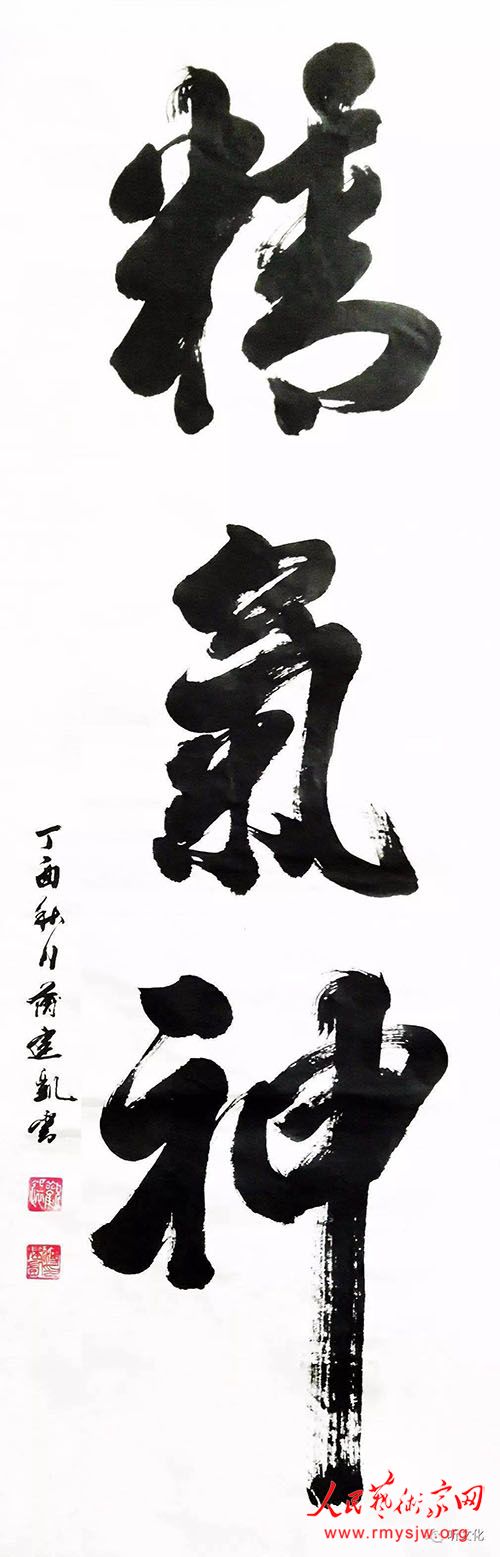 精氣神
丁酉秋月蒲建凱書
人民藝術家网
www.rmysjw.org